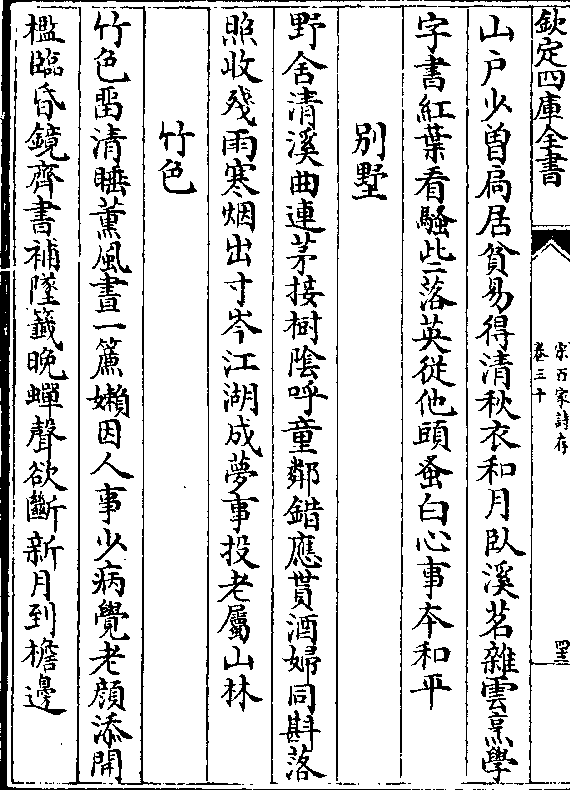 欽定四庫全書
宋百家詩存
卷三十
山戶少曽扄居貧易得清秋衣和月臥溪茗雜雲烹學
字書紅葉看騷此落英從他頭蚤白心事本和平
別墅
野舍清溪曲連茅接樹陰呼童鄰錯應貰酒婦同斟落
照收殘雨寒烟出寸岑江湖成夢事投老屬山林
竹色
竹色畱清睡薰風晝一簾嬾因人事少病覺老顔添開
檻臨昏鏡齊書補墜籤晚蟬聲欲斷新月到檐邊